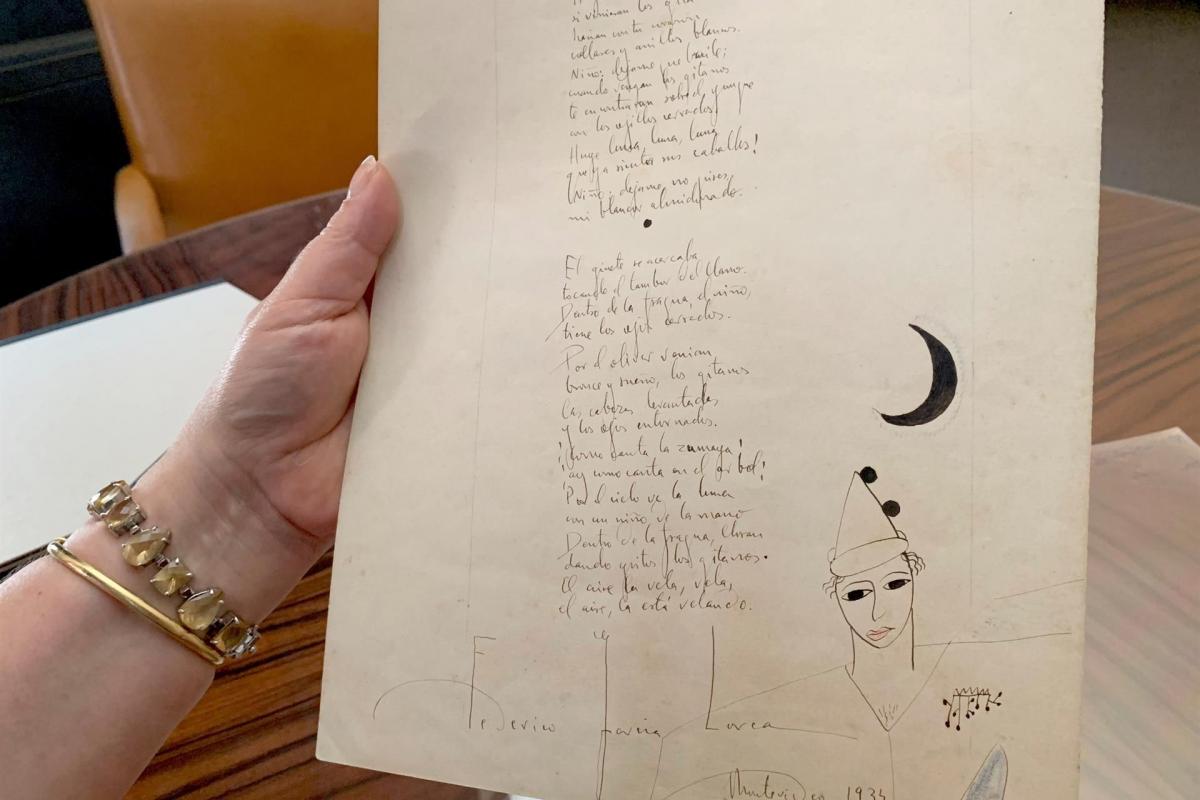 si vinieran los gitanos
harian con tu corazon
collares y anillos blancos.
Niño: dejame que baile;
cuando vengan los gitanos
te encontraran sobre el yunque
con los ojillos cerrados
Huye luna, luna, luna
que ya siento sus caballos!
Niño: dejame no pises,
mi blancor almidonado.
El ginete se acercaba
tocando el tambor del llano.
Dentro de la fragua, el niño,
tiene los ojos cerrados.
Por el olivar venian,
bronce y sueño, los gitanos
las cabezas levantadas
y los ojos entornados.
¡Como canta la zumaya!
¡ay como canta en el arbol!
Por el cielo va la luna
con un niño de la mano
Dentro de la fragua, lloran
dando gritos los gitanos.
El aire la vela, vela,
el aire, la está velando.
Federico Garcia Lorca
Montevideo 1934